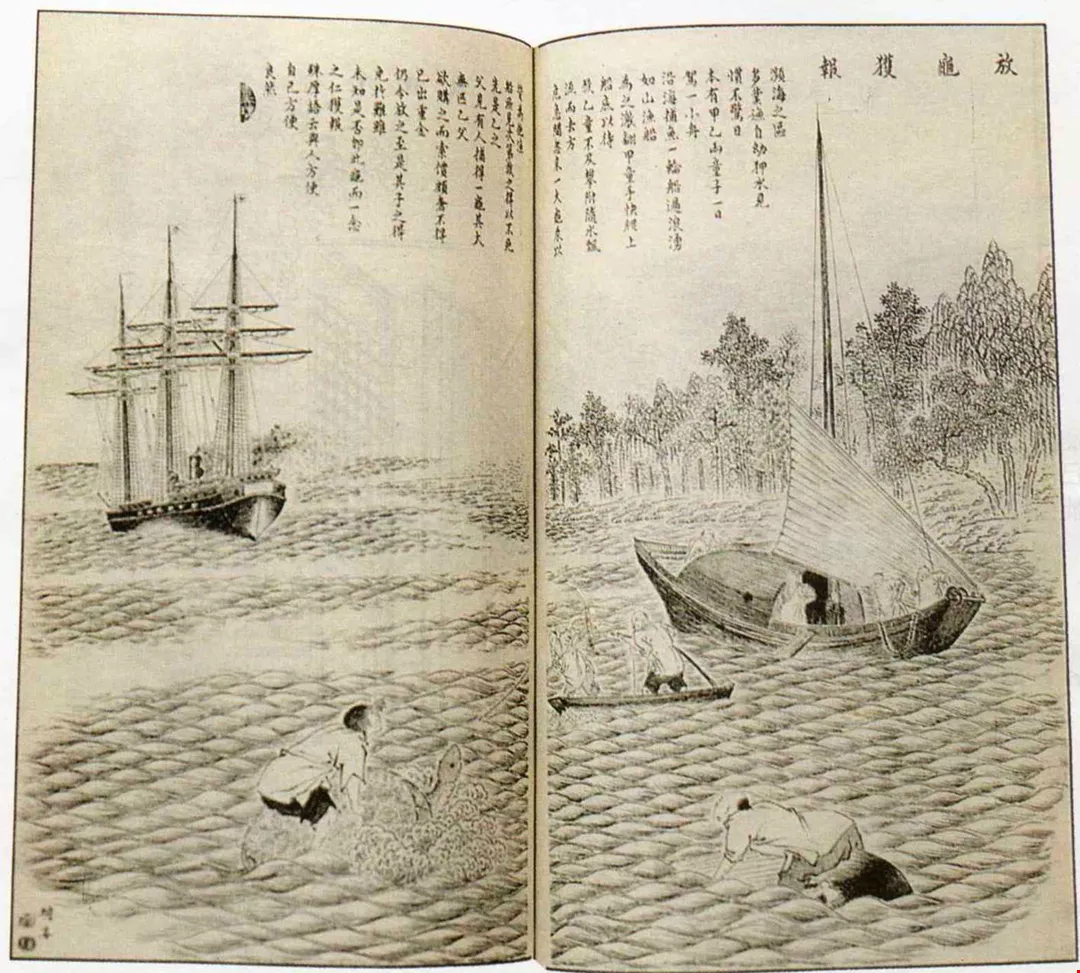 放龜獲報
瀕海之區
多業漁自幼狎水見
慣不驚日
本有甲乙兩童子一日
駕一小舟
沿海捕魚一輪船過浪湧
如山漁船
為之激翻甲童手快
上
船底以待
救乙童不及攀附隨水飄
流而去方
危急間忽來一大龜乘以
救之得以不死
先是乙之
父見有人捕得一龜其大
無匹乙父
欲購之而索價頗奢不惜
已出重金
仍令放之至是其子之得
免於難雖
未知是否即此龜而一念
之仁獲報
殊厚語云與人方便
自己方便
良然